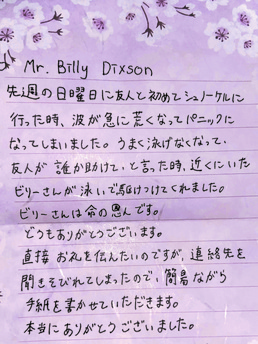 Mr. Billy Dixson
先週の日曜日に友人と初めてシュノーケルに
行った時、波が急に荒くなってパニックに
なってしまいました。うまく泳げなくなって、
友人が誰か助けて、と言った時、近くにいた
ビリーさんが泳いで駆けつけてくれました。
ビリーさんは命の恩人です。
どうもありがとうございます。
直接お礼を伝えたいのですが、連絡先を
聞きそびれてしまったので、簡易ながら
手紙を書かせていただきます。
本当にありがとうございました。